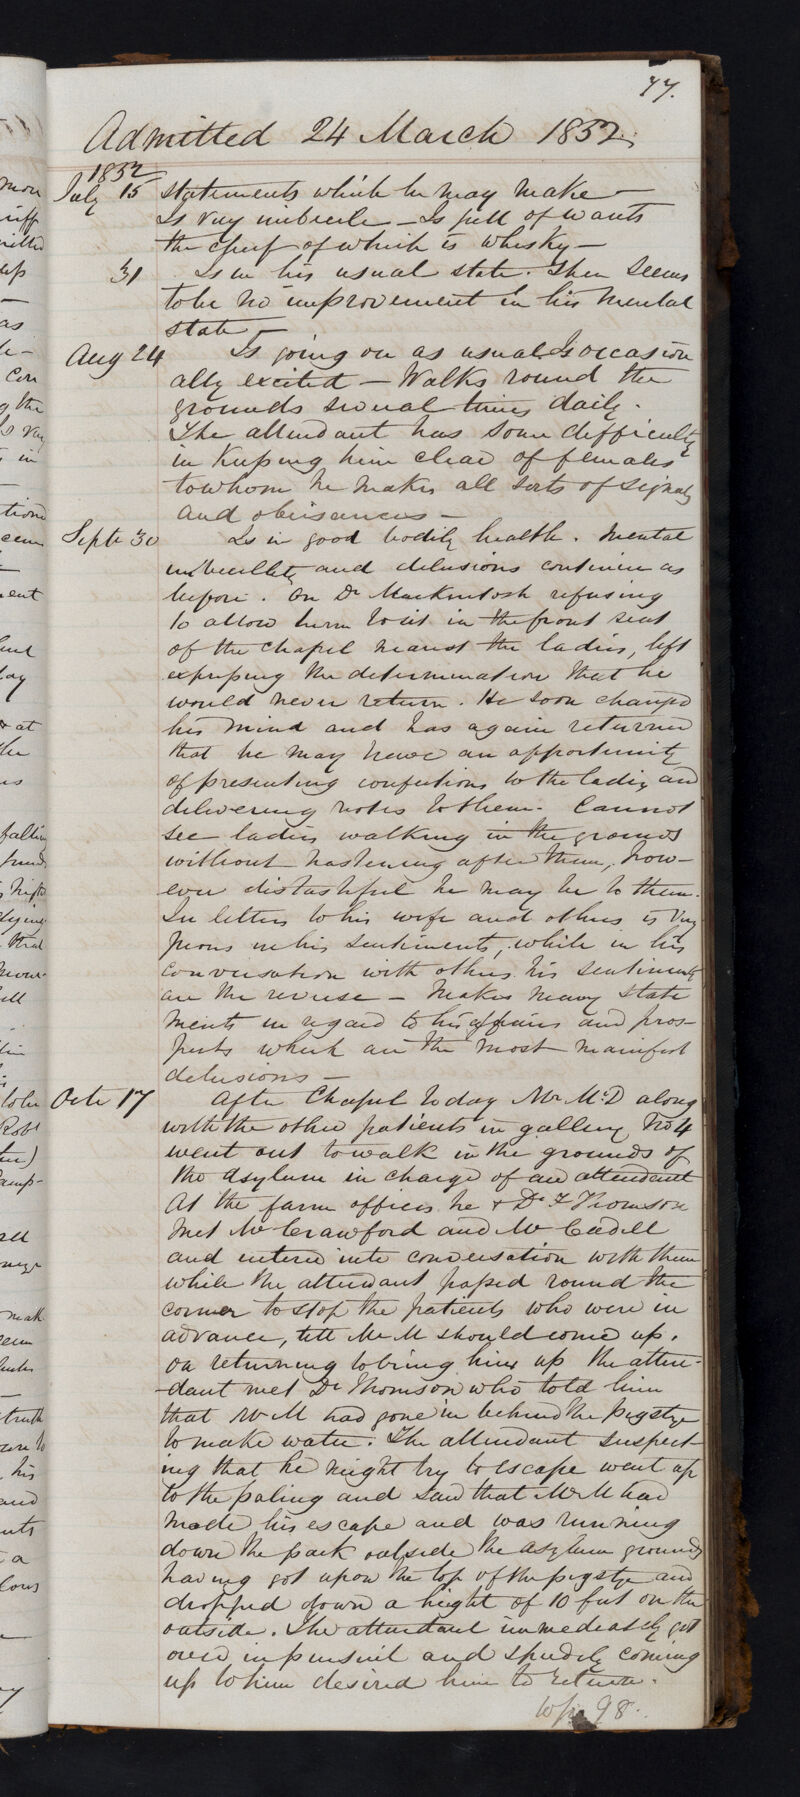 77.
Admitted 24 March 1852.
1852
July 15 statements which he may make —
Is very imbecile — Is full of wants
the chief of which is whisky —
31 Is in his usual state. There seems
to be no improvement in his mental
state —
Aug 24 Is going on as usual. Is occasion
ally excited — Walks round the
grounds several times daily.
The attendant has some difficulty
in keeping him clear of females
to whom he makes all sorts of signals
and obeisances —
Septr 30 Is in good bodily health. Mental
imbecility and delusions continue as
before. On Dr Mackintosh refusing
to allow him to sit in the front seat
of the chapel nearest the ladies, left
expressing the determination that he
would never return. He soon changed
his mind and has again returned
that he may have an opportunity
of presenting confections to the ladies and
delivering notes to them. Cannot
see ladies walking in the grounds
without hastening after them, how-
ever distasteful he may be to them.
In letters to his wife and others is very
pious in his sentiments, while in his
conversation with others his sentiments
are the reverse — Makes many state
ments in regard to his affairs and pros-
pects which are the most manifest
delusions —
Octr 17 After Chapel today Mr McD along
with the other patients in gallery No 4
went out to walk in the grounds of
the Asylum in charge of an attendant
At the farm offices he & Dr F Thomson
met Mr Crawford and Mr Cadell
and entered into conversation with them
while the attendant passed round the
corner to stop the patients who were in
advance, till Mr M should come up.
On returning to bring him up the atten-
-dant met Dr Thomson who told him
that Mr M had gone in behind the pigstye
to make water. The attendant suspect-
ing that he might try to escape went up
to the paling and saw that Mr M had
made his escape and was running
down the park outside the asylum grounds
having got upon the top of the pigstye and
dropped down a height of 10 feet on the
outside. The attendant immediately got
over in pursuit and speedily coming
up to him desired him to return.
98.